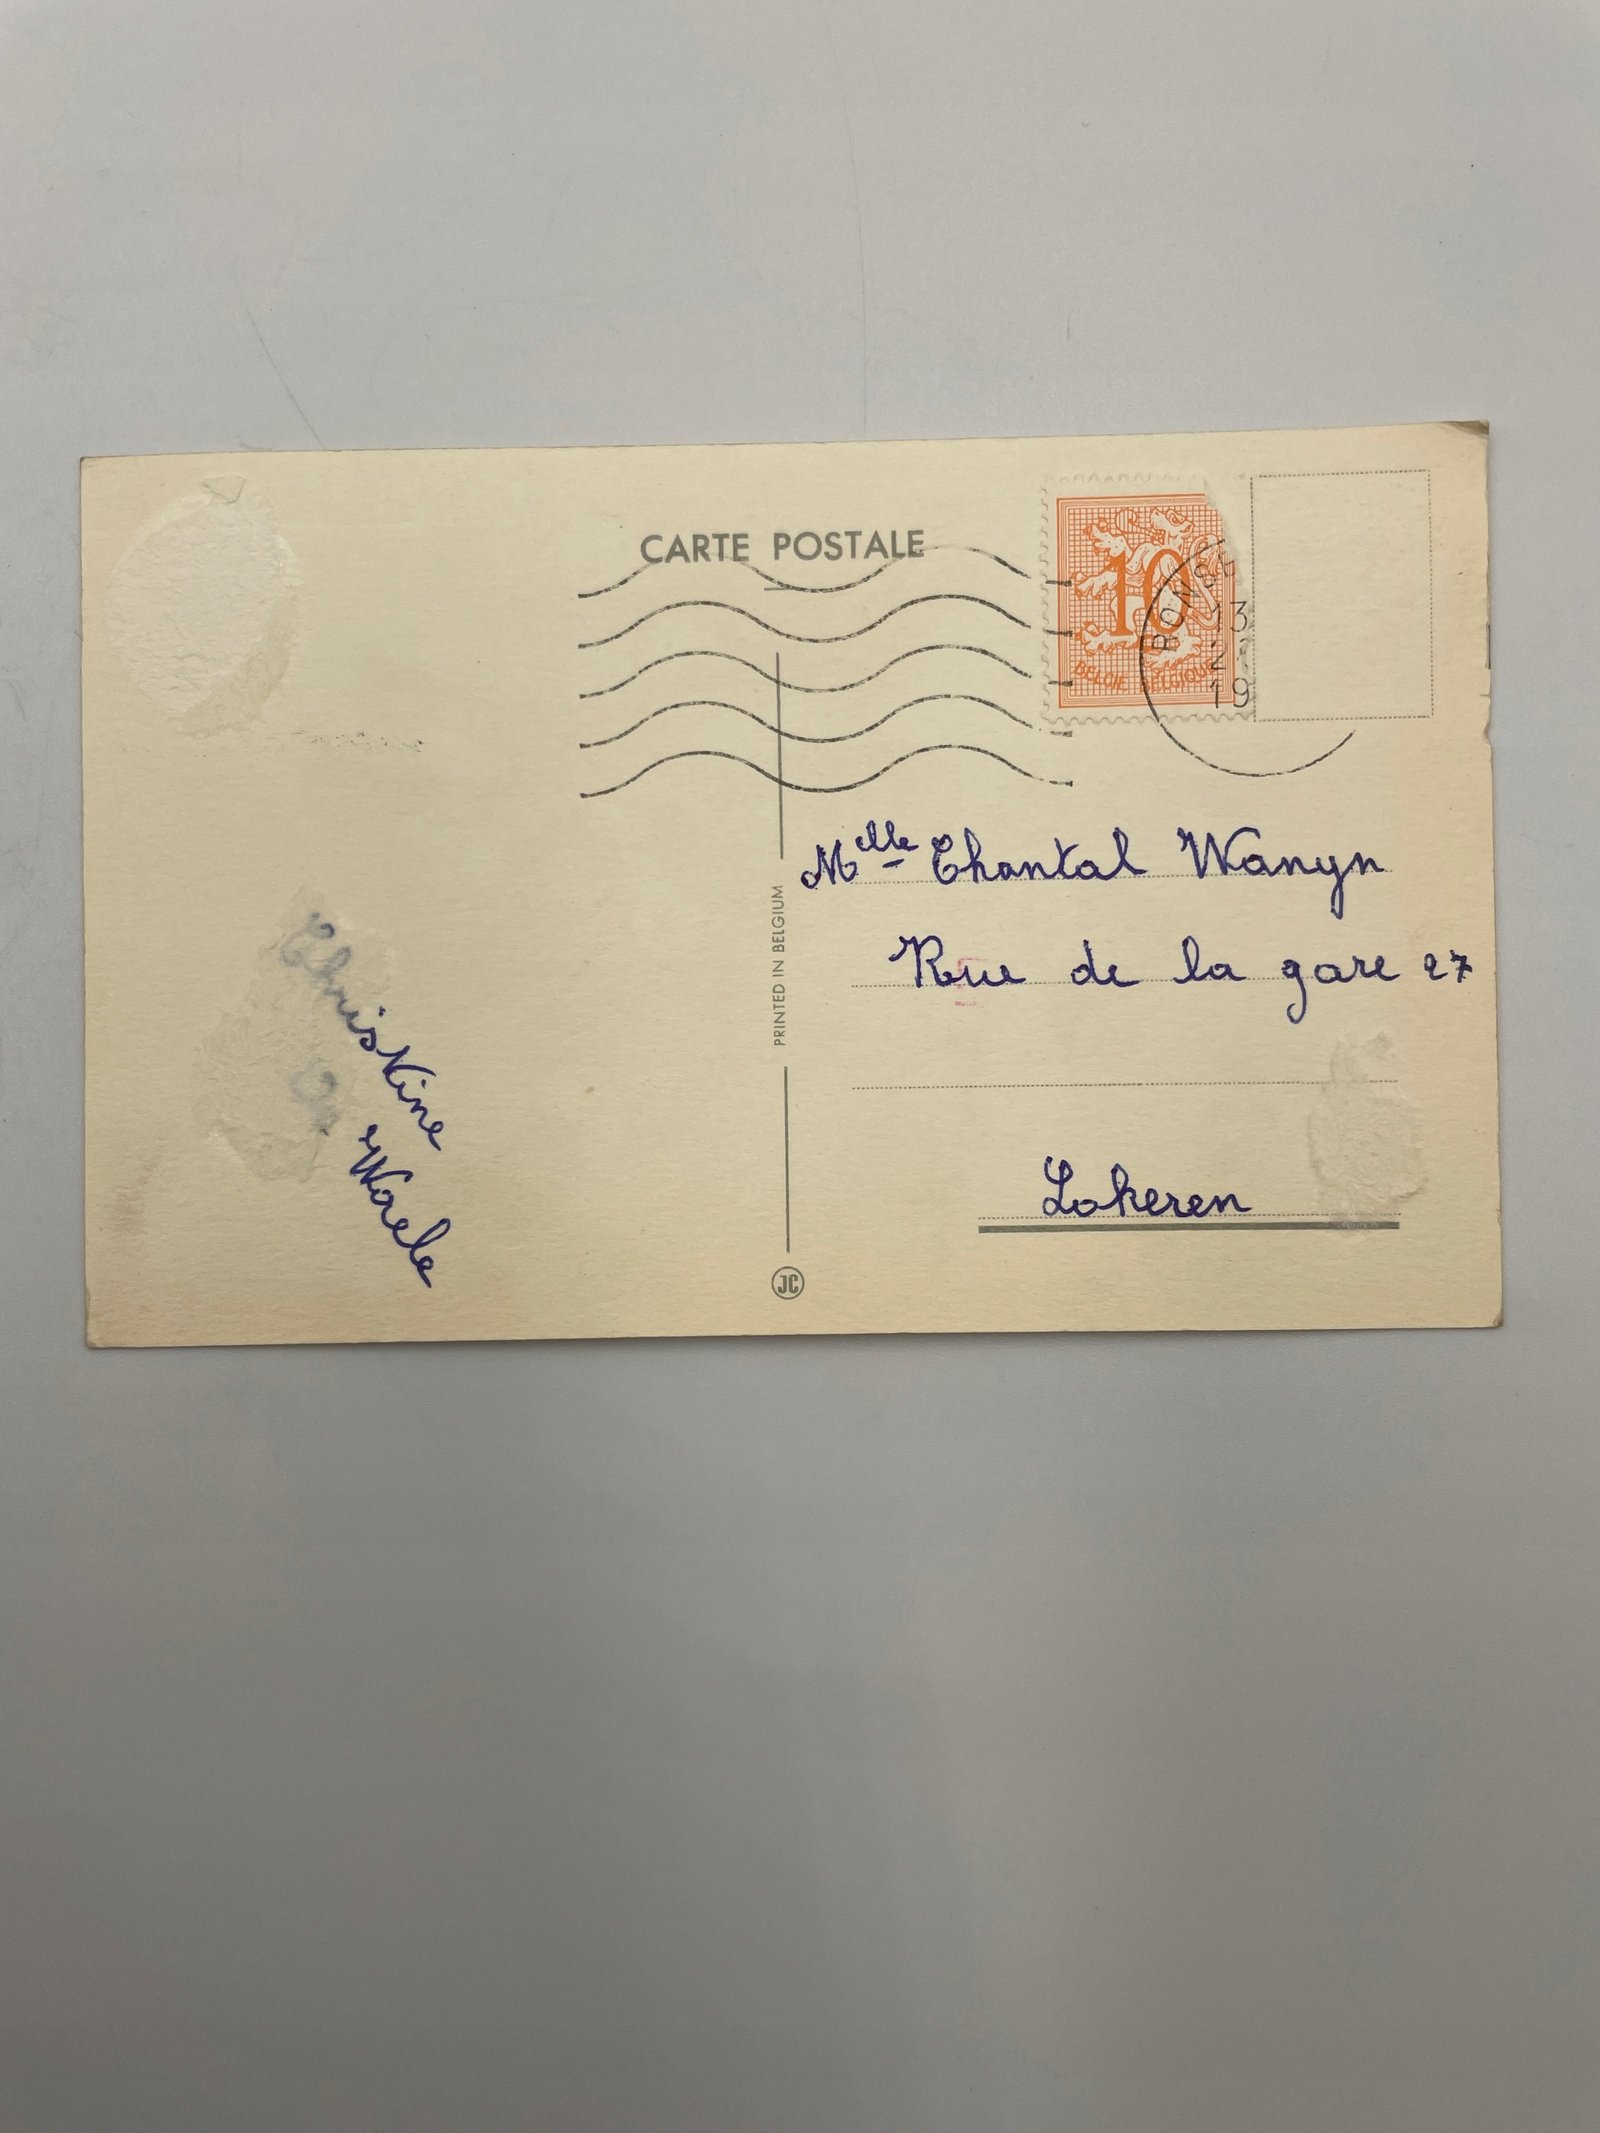 CARTE POSTALE
10
BELGIE BELGIQUE
13
19
Melle Chantal Wanyn
Rue de la gare 27
Lokeren
Christine
De Waele
PRINTED IN BELGIUM
JC